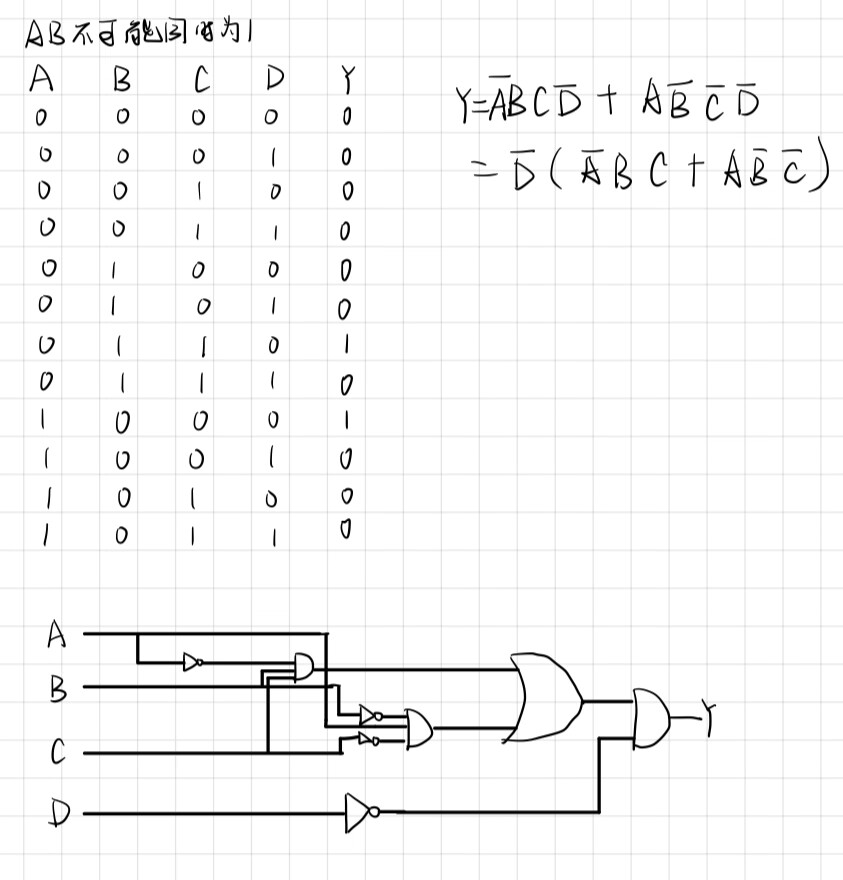 AB不可能同时为1
A B C D Y
0 0 0 0 0
0 0 0 1 0
0 0 1 0 0
0 0 1 1 0
0 1 0 0 0
0 1 0 1 0
0 1 1 0 1
0 1 1 1 0
1 0 0 0 1
1 0 0 1 0
1 0 1 0 0
1 0 1 1 0
Y=A̅BCD̅ + AB̅C̅D̅
=D̅(A̅BC+AB̅C̅)
A
B
Y
C
D